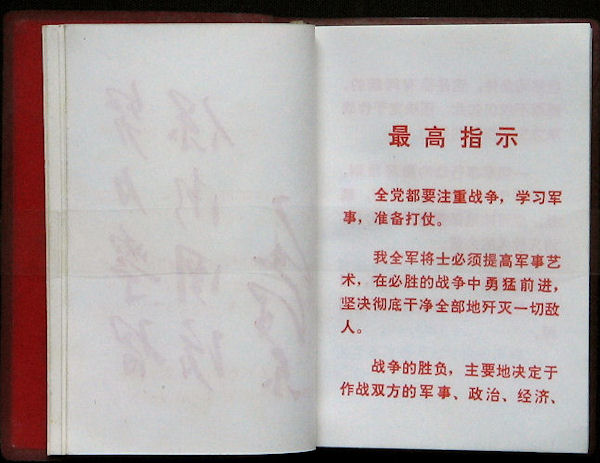 最高指示
全党都要注重战争，学习军
事，准备打仗。
我全军将士必须提高军事艺
术，在必胜的战争中勇猛前进，
坚决彻底干净全部地歼灭一切敌
人。
战争的胜负，主要地决定于
作战双方的军事、政治、经济、